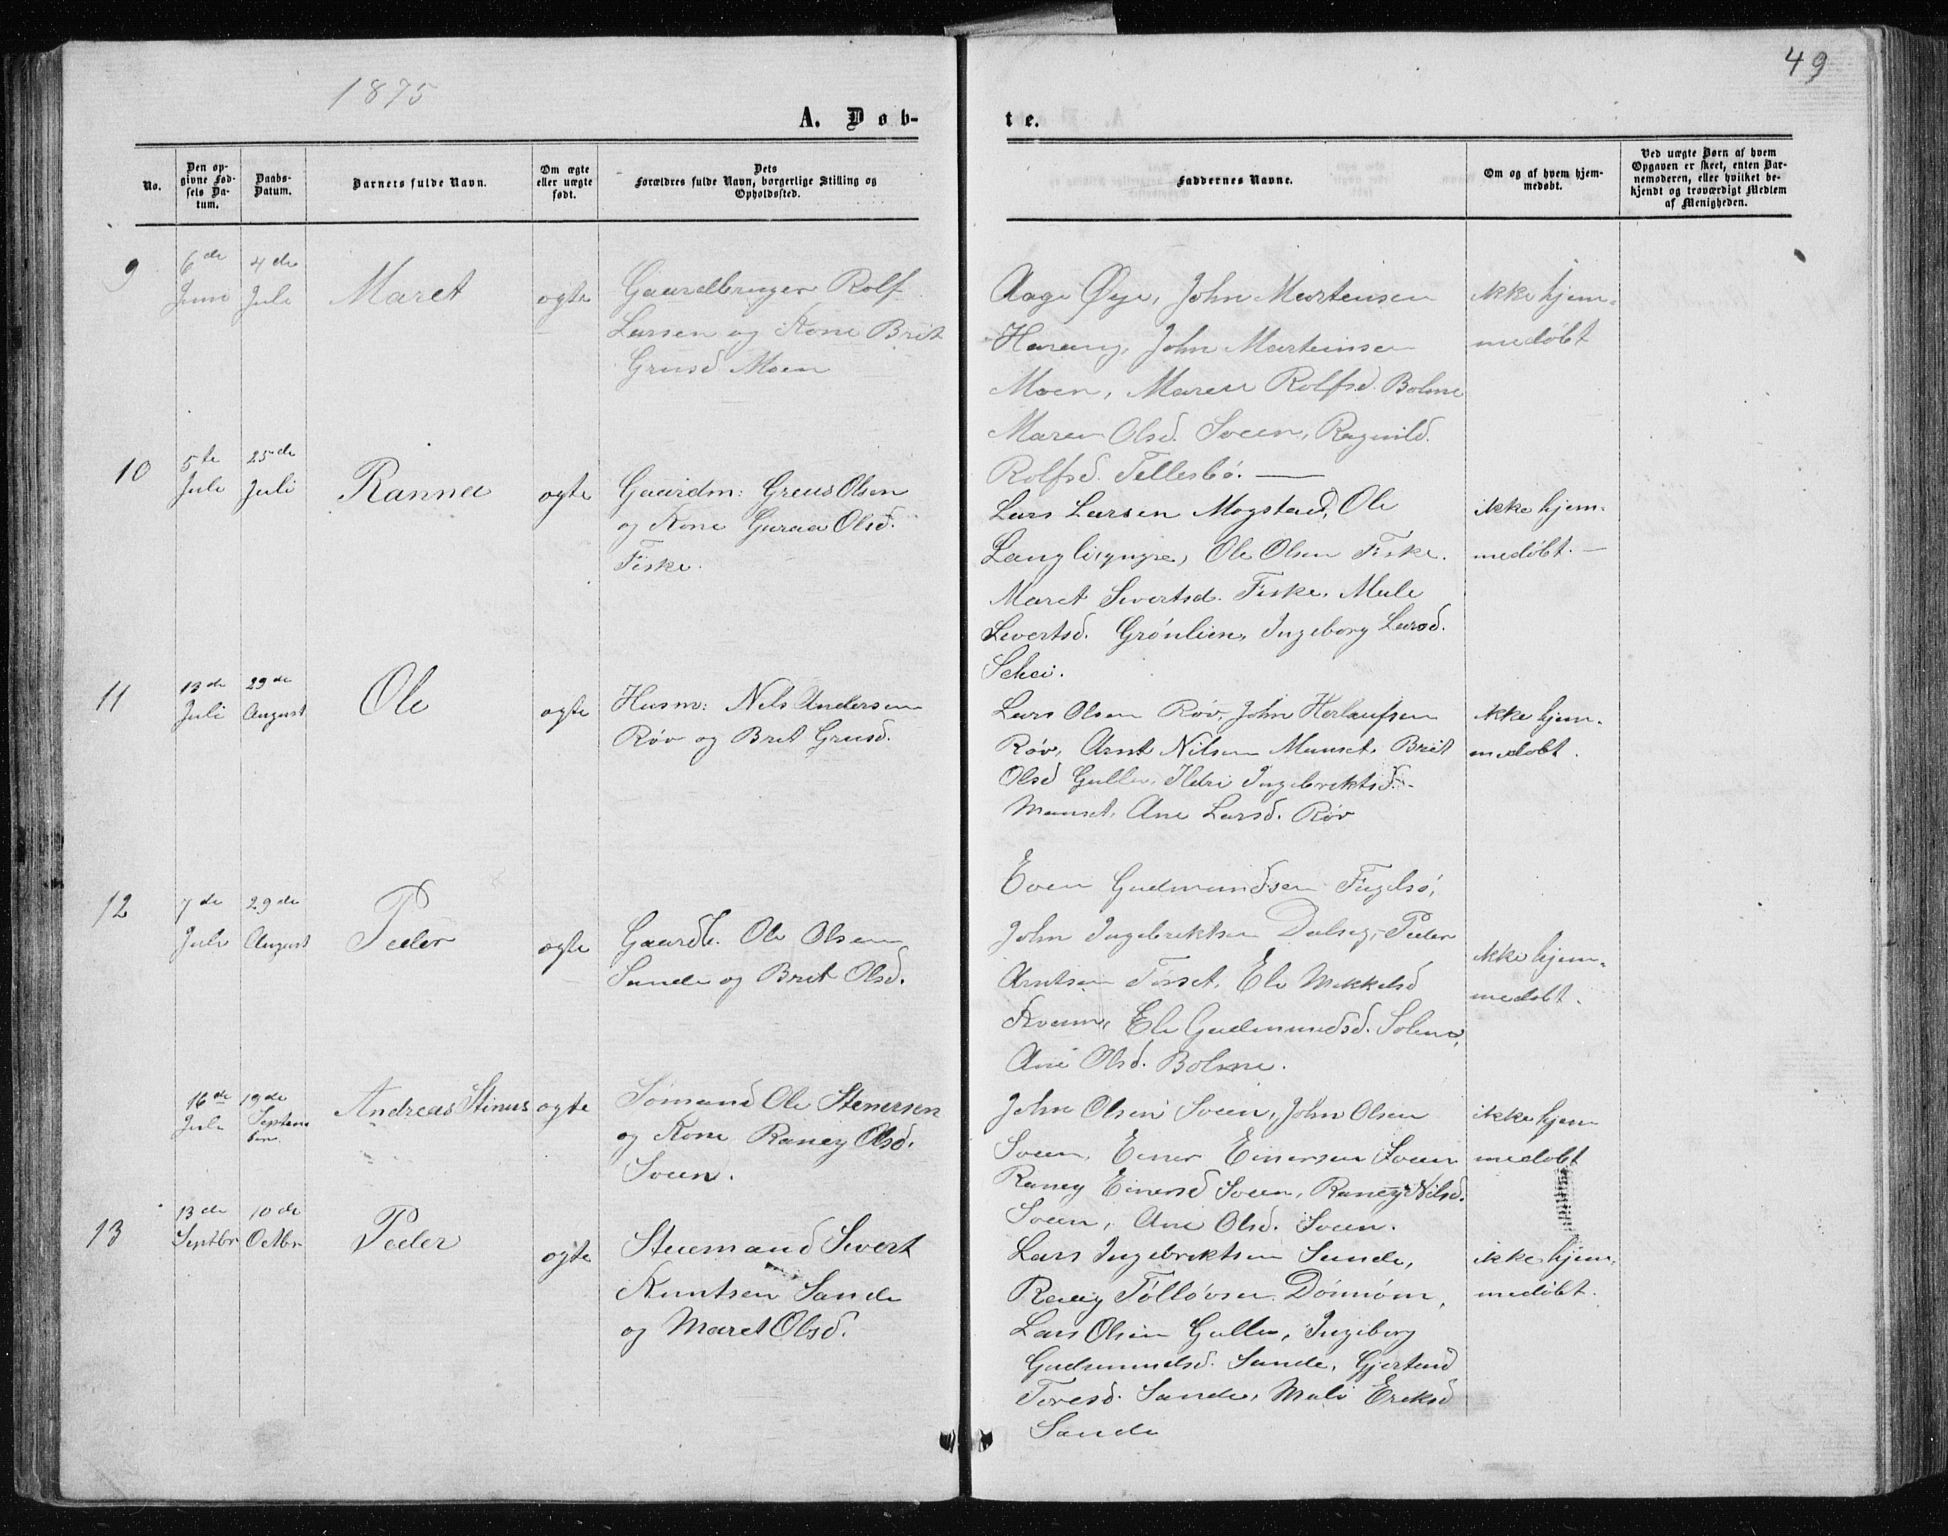 1875
49
A. Døb-
te.
No.
Den op-
givne Fød-
sels Da-
tum.
Daabs-
Datum.
Barnets fulde Navn.
Om ægte
eller uægte
født.
Dets
Forældres fulde Navn, borgerlige Stilling og
Opholdssted.
Faddernes Navne.
Om og af hvem hjem-
medøbt.
Ved uægte Børn af hvem
Opgaven er skeet, enten Bar-
nemoderen, eller hvilket be-
kjendt og troværdigt Medlem
af Menigheden.
9
6de
Juni
4de
Juli
Maret
ogte
Gaardbruger Rolf
Larsen og Kone Brit
Grusd. Moen
Aage Øye, John Mortensen
Harang, John Martinsen
Moen, Maren Rolfsd. Bolme
Maren Olsd. Soeen, Ragnild.
Rolfsd. Tellesbø. —
ikke hjem-
medøbt
10
5te
Juli
25de
Juli
Ranna
ogte
Gaardm: Greus Olsen
og Kone Guraa Olsd.
Fiske.
Lars Larsen Mogstad, Ole
Ole Olsen Fiske.
Maret Sivertsd. Fiske, Male
Severtsd. Grønlien, Ingeborg Larsd.
Schei.
ikke hjem-
medøbt. —
11
13de
Juli
29de
August
Ole
ogte
Husm: Nils Andersen
Røv og Brit Grusd.
Lars Olsen Røv, John Herlaufsen
Røv, Arnt Nilsen Manset, Brit
Olsd Gulle, Ildri Ingebriktsd.
Manset, Ane Larsd. Røv
ikke hjem-
medøbt.
12
7de
Juli
29de
August
Peder
ogte
Gaardb. Ole Olsen
Sande og Brit Olsd.
Even Gudmundsen Fuglsø,
John Ingebriktsen Dalseg, Peder
Arntsen Tørset, Eli Mikkelsd
Kvam, Eli Gudmundsd. Solem,
Ane Olsd. Bolme.
ikke hjem-
medøbt.
16de
Juli
19de
Septem
ber.
Andreas Stinus
ogte
Sømand Ole Stenersen
og Kone Raney Olsd.
Soeen.
John Olsen Soeen, John Olsen
Soeen, Einer Einersen Soeen
Raney Einersd Soeen, Raney Nilsd.
Soeen, Ane Olsd. Soeen.
ikke hjem
medøbt
13
13de
Septbr
10de
Octbr
Peder
ogte
Steemand Sivert
Knutsen Sande
og Maret Olsd.
Lars Ingebriktsen Sande,
Dønnem,
Lars Olsen Gulle, Ingeborg
Gudmundsd. Sande, Gjertrud
Toresd. Sande, Mali Eriksd
Sande
ikke hjem-
medøbt.